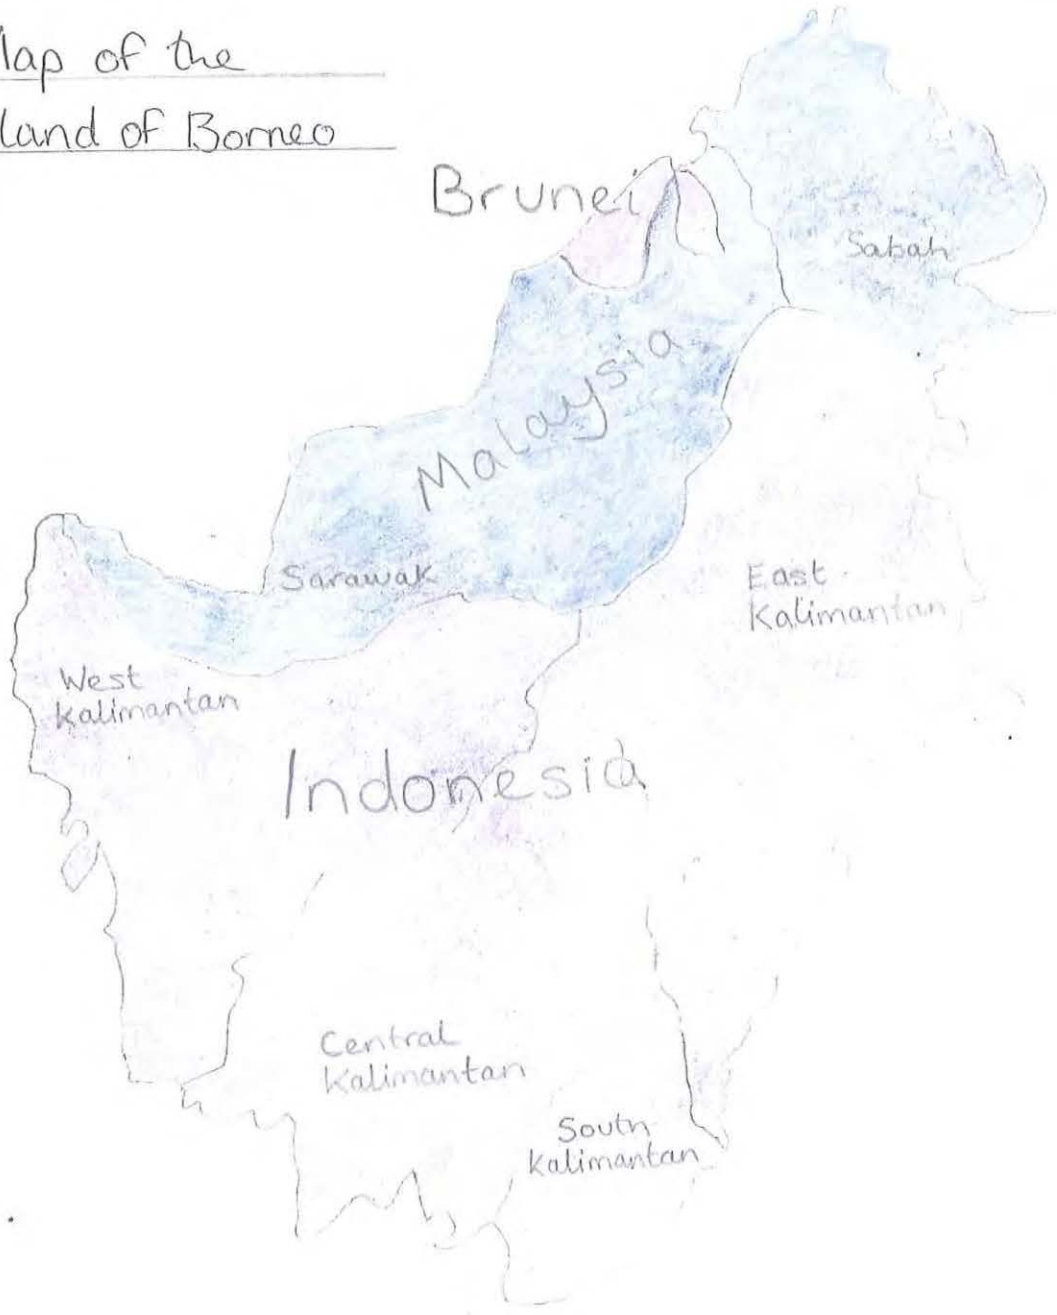 lap of the
land of Borneo
Brunei
Sabah
Malaysia
Sarawak
East
Kalimantan
West
Kalimantan
Indonesia
Central
Kalimantan
South
Kalimantan